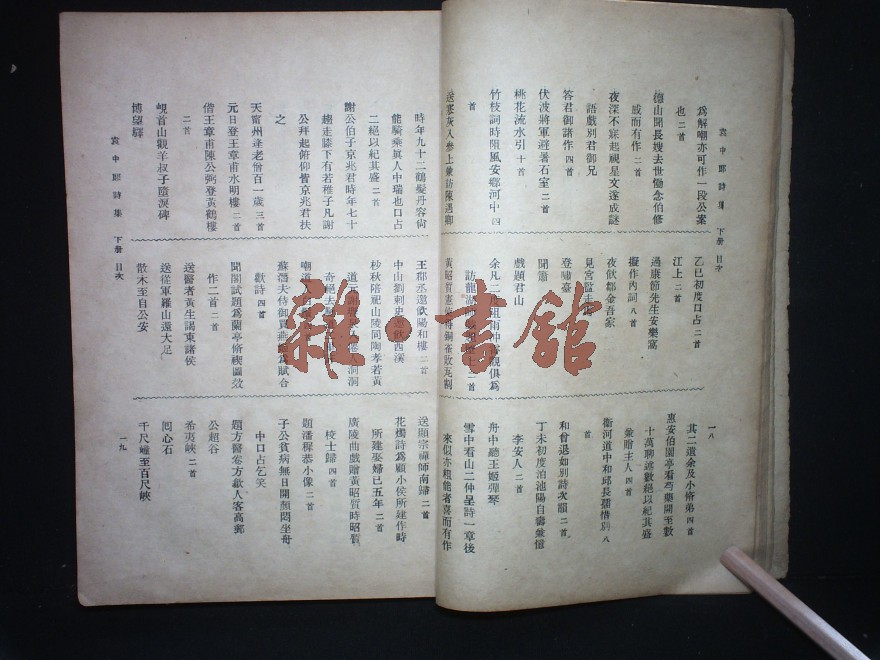 袁中郎詩集 下册 目次
爲解嘲亦可作一段公案
也 二首
德山聞長嫂去世慟念伯修
感而有作 二首
夜深不寐起視星文遂成謎
語戲別君御兄
答君御諸作 四首
伏波將軍避暑石室 二首
桃花流水引 十首
竹枝詞時阻風安鄉河中 四
首
送寒灰人參上兼訪陳遇卿
乙巳初度口占 二首
江上 二首
過康節先生安樂窩
擬作內詞 八首
夜飲鄒金吾家
見宮監走馬
登嘯臺
聞簫
戲題君山
余凡二度阻雨仲宣觀俱爲
訪龍湖
黃昭質憲
一八
其二遺余及小脩弟 四首
惠安伯園亭看芍藥開至數
十萬聊述數絕以紀其盛
兼贈主人 四首
衞河道中和邱長孺惜別 八
首
和曾退如別詩次韻 二首
丁未初度泊池陽自壽兼憶
李安人 二首
舟中聽王姬彈琴
雪中看山二仲呈詩一章後
來似亦頗能者喜而有作
時年九十二鶴髮丹容尙
能騎乘眞人中瑞也口占
二絕以紀其盛 二首
謝公伯子京兆君時年七十
趨走膝下有若稚子凡謝
公拜起俯仰皆京兆君扶
之
天甯州逢老僧百一歲 三首
元日登王章甫水明樓 二首
偕王章甫陳公弼登黃鶴樓
二首
峴首山觀羊叔子墮淚碑
博望驛
袁中郎詩集 下册 目次
王郡丞邀飲陽和樓 二首
中山劉刺史邀飲西溪
杪秋陪祀山陵同陶孝若黃
道元謝
奇絕去
嘲道人
歡詩 四首
蘇潛夫侍御買燕姬爲賦合
聞閣試題爲蘭亭脩禊圖效
作二首 二首
送醫者黃生謁東諸侯
送從軍羅山還大足
散木至自公安
送顯宗禪師南歸 二首
花燭詩爲顧小侯所建作時
所建娶婦已五年 二首
廣陵曲戲贈黃昭質時昭質
校士歸 四首
題潘穉恭小像 二首
子公貧病無日開顏悶坐舟
中口占乞笑
題方醫卷方歙人客高郵
公超谷
希夷峽 二首
囘心石
千尺㠉至百尺峽
一九
雜·書館